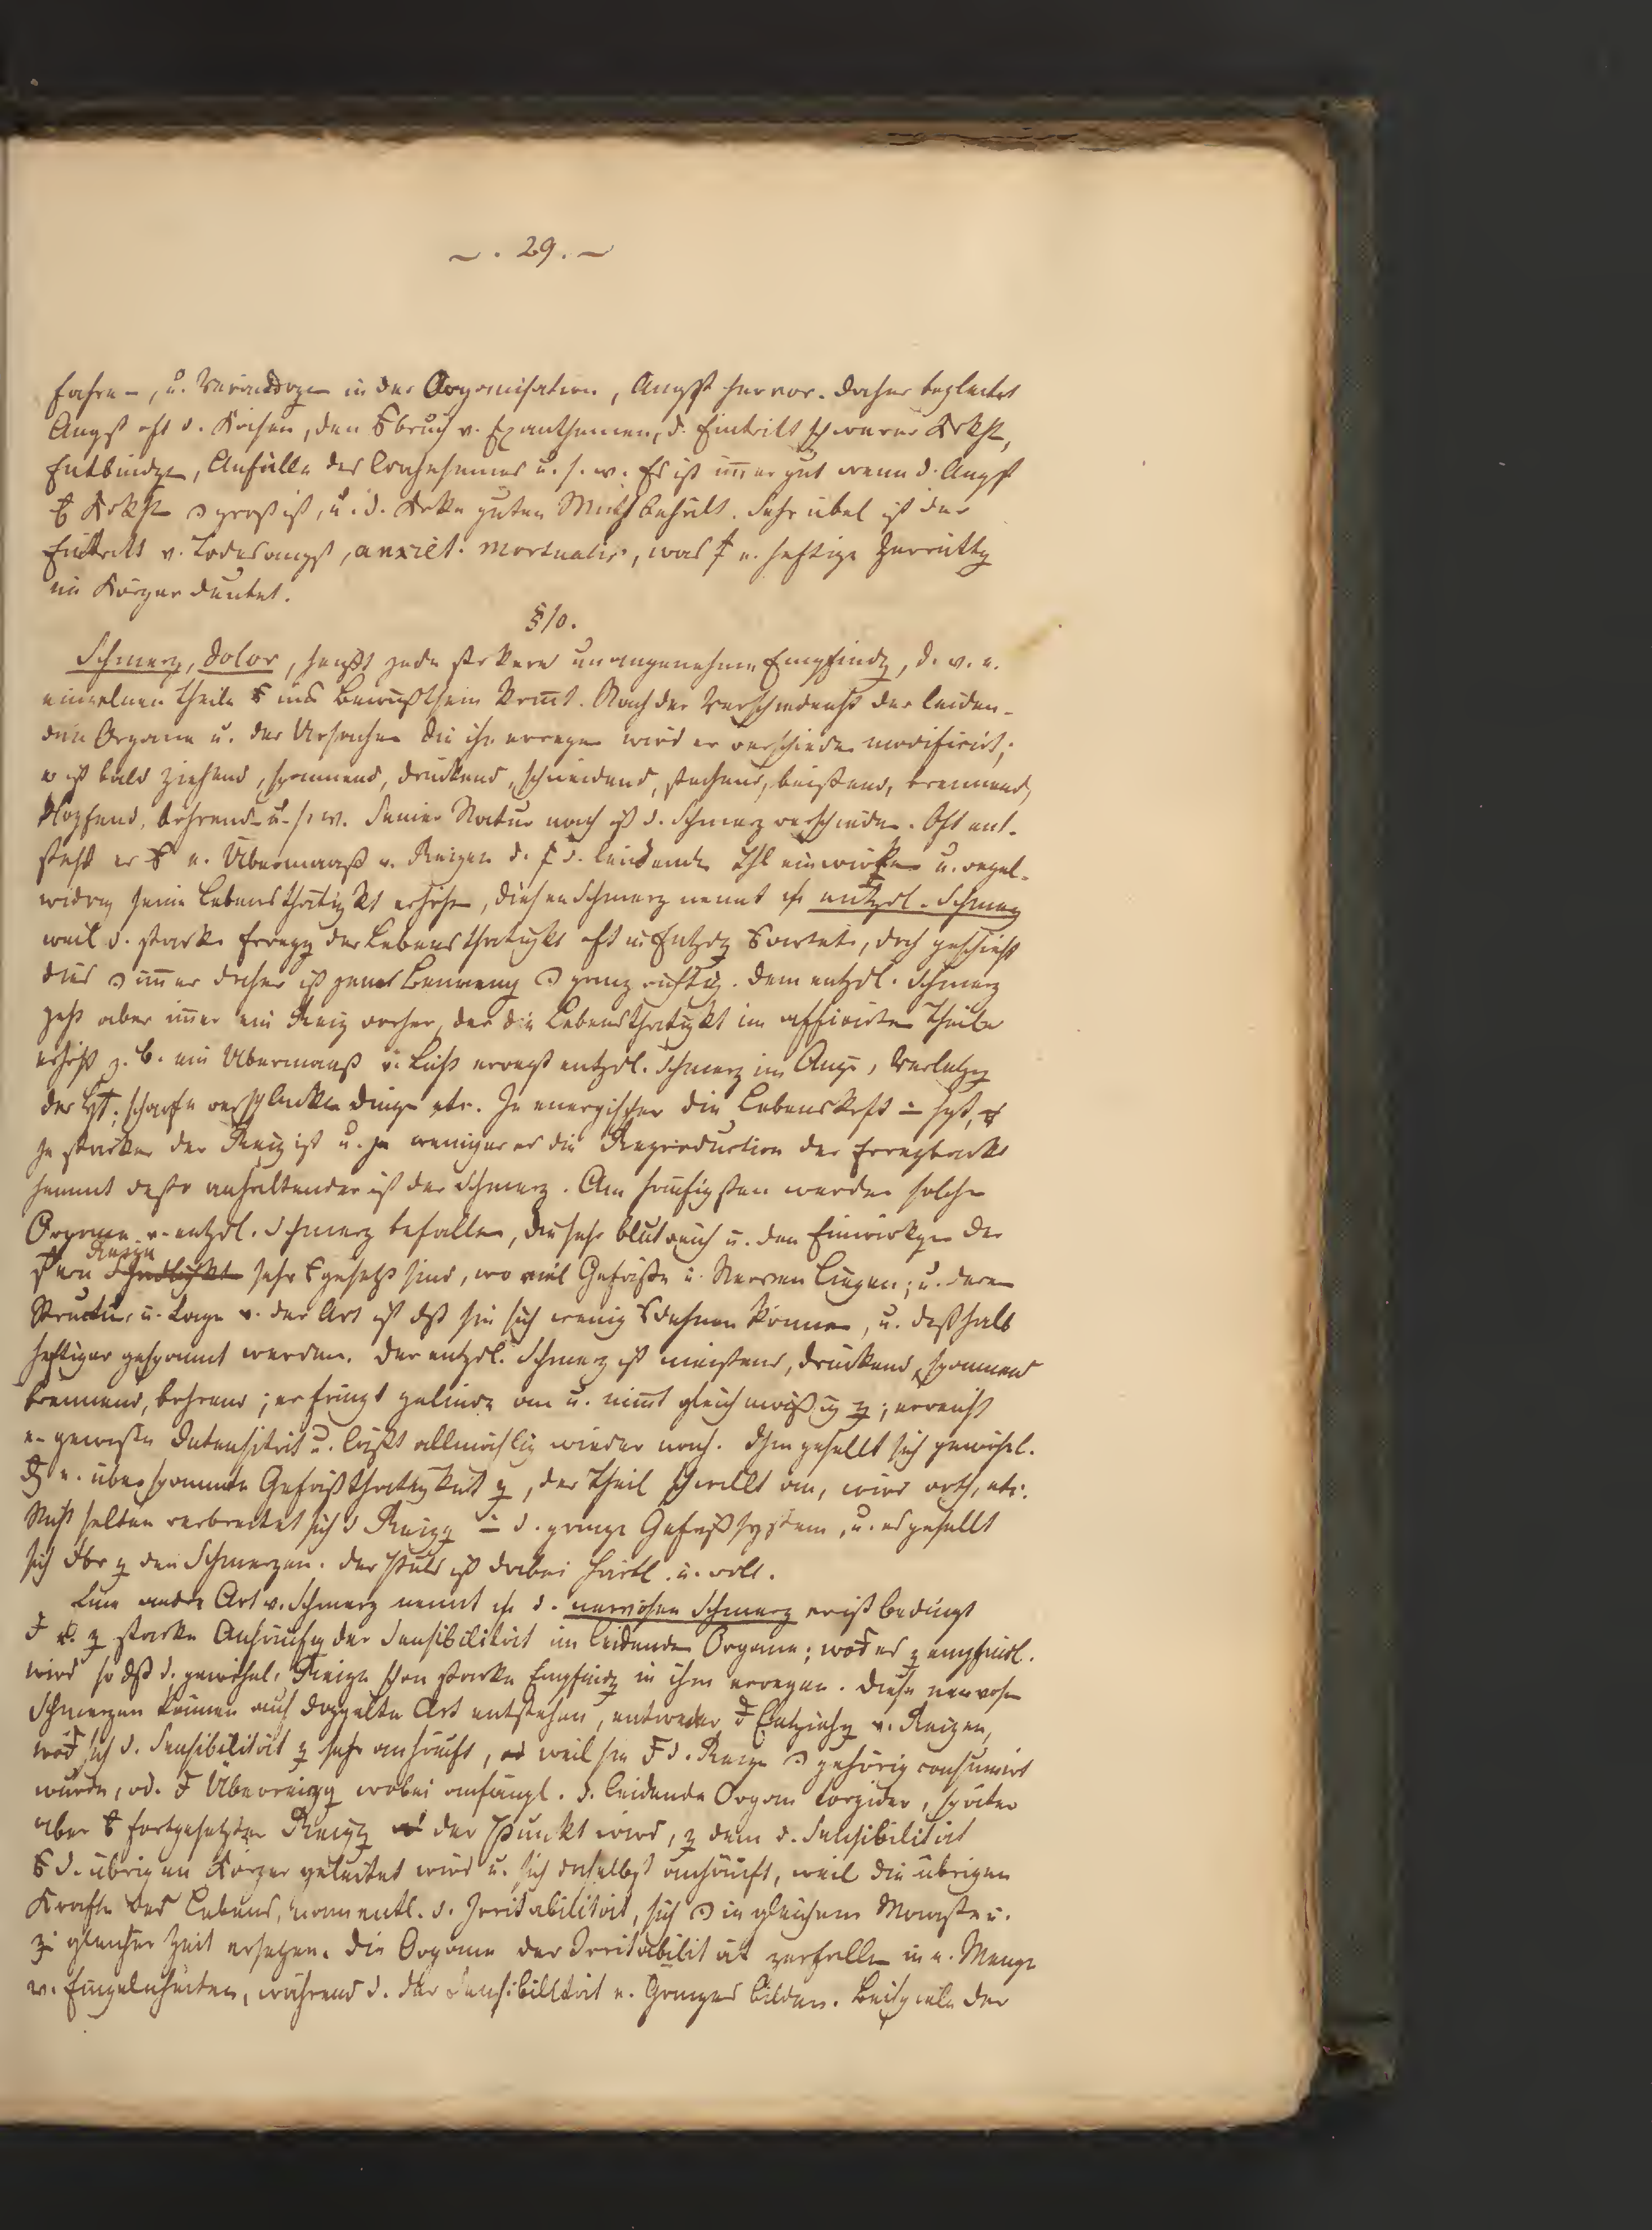 ~ . 29. ~
fahre-, u. Verändrgen in der Organisation, Angst hervor. Daher begleitet
Angst oft d. Krisen, den bruch v. Exanthemen, d. Eintritt schwerer Krkht,
Entbindgen, Anfälle der u. s. w. Es ist immer gut wenn d. Angst
Krkht groß ist, u. d. Krke guten Muth behält. Sehr übel ist der
Eintritt v. Todesangst, anxiet. mortualis, was e. heftige Zerrüttg
im Körper deutet.
§10.
Schmerz, dolor, heißt jede stärkere unangenehme Empfindg, d. v. e.
einzelnen Theile ins Bewußtsein komt. Nach der Verschiedenht der leiden-
den Organe u. der Ursachen die ihn erregen wird er verschieden modificirt;
er ist bald ziehend, spannend, drückend, schneidend, stechend, beißend, brennend,
klopfend, bohrend u. s. w. Seiner Natur nach ist d. Schmerz verschieden. Oft ent-
steht er e. Übermaaß v. Reizen d. d. leidenden Thl einwirken u. regel-
widrig seine Lebensthätigkt erhöhen, diesen Schmerz nennt entzdl. Schmerz
weil d. starke Erregg der Lebensthätigkt oft in Entzdg , doch geschieht
dies immer daher ist jene Benennung ganz richtig. Dem entzdl. Schmerz
geht aber immer ein Reiz vorher, der die Lebensthätigkt im afficirten Theile
erhöht z. B. ein Übermaaß v. Licht erregt entzdl. Schmerz im Auge, Verletzg
der , scharfe verschluckte Dinge etc. Je energischer die Lebenskrft ist,
je stärker der Reiz ist u. je weniger er die Reproduction der Erregbarkt
hemmt desto anhaltender ist der Schmerz. Am häufigsten werden solche
Organe v. entzdl. Schmerz befallen, die sehr blutreich u. den Einwirkgen der
Reize
sehr gesetzt sind, wo viel Gefäße u. Nerven liegen; u. deren
Structur u. Lage v. der Art ist dß sie sich wenig dehnen können, u. deßhalb
heftiger gespannt werden. Der entzdl. Schmerz ist meistens, drückend, spannend
brennend, bohrend; er fängt gelinde an u. nimt gleichmäßig z; erreicht
e. gewisse Intensität u. läßt allmählig wieder nach. Ihm gesellt sich gewöhnl.
e. überspannte Gefäßthätigkeit z, der Theil schwillt an, wird roth, etc.
Nicht selten verbreitet sich d Reizg d. ganze Gefäßsystem, u. es gesellt
sich z den Schmerzen. Der Puls ist dabei härtl. u. voll.
Eine andre Art v. Schmerz nennt d. nervösen Schmerz er ist bedingt
z starke Anhäufg der Sensibilität im leidenden Organe; es z empfindl.
wird so dß d. gewöhnl. Reize schon starke Empfindg in ihm erregen. Diese nervösen
Schmerzen können auf doppelte Art entstehen, entweder Entziehg v. Reizen,
sich d. Sensibilität z sehr anhäuft, weil sie d. Reize gehörig consumirt
wurde, od. Überreizg wobei anfängl. d. leidende Organ torpider, später
aber fortgesetzten Reizg der Punkt wird, z dem d. Sensibilität
d. übrigen Körper geleitet wird u. sich daselbst anhäuft, weil die übrigen
Kräfte des Lebens, namentl. d. Irritabilität, sich in gleichem Maaße u.
z gleicher Zeit ersetzen. Die Organe der Irritabilität zerfallen in e. Menge
v. Einzelnheiten, während d. der Sensibilität e. Ganzes bilden. Beispiele der